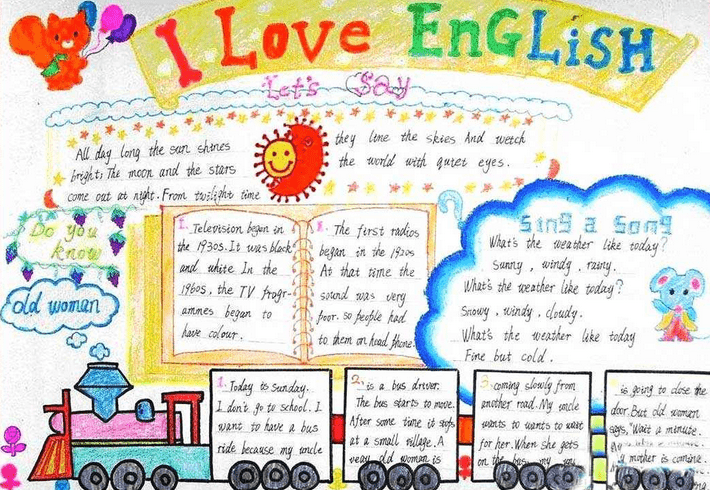 I Love EnGLiSH
Let's Say
All day long the sun shines
bright; The moon and the stars
come out at night. From twilight time
they line the skies And wetch
the world with quiet eyes.
Do you
know
old woman
1. Television began in
the 1930s. It was black
and white In the
1960s, the TV progr-
ammes began to
have colour.
The first radios
began in the 1920s
At that time the
sound was very
poor. so people had
to them on head phone
Sing a Song
What's the weather like today?
Sunny, windy, rainy.
What's the weather like today?
Snowy, windy, cloudy.
What's the weather like today
Fine but cold.
1. Today is Sunday.
I don't go to school. I
want to have a bus
ride because my uncle
2. is a bus driver.
The bus starts to move.
After some time it stops
at a small village. A
very old woman is
3. coming slowly from
another road. My uncle
wants to wants to wait
for her. When she gets
on the bus my
is going to close the
door. But old woman
says, "Wait a minute.
mother is comine.